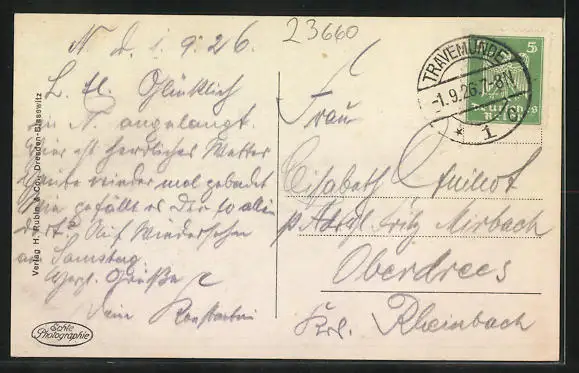 23660
N. d. 1.9.26.
L. El. Glücklich
in N. angelangt.
Hier ist herrliches Wetter
Heute wieder mal gebadet
Wie gefällt es Dir so allein
dort? Auf Wiedersehen
am Samstag.
Herzl. Grüße
Dein Konstantin
Verlag H. Rubin & Co., Dresden-Blasewitz
Echte
Photographie
TRAVEMÜNDE
-1.9.26.7-8N
* 1
5
Deutsches
Reich
Frau
Elisabeth
p. Adr. Fritz Mirbach
Oberdrees
Krs. Rheinbach